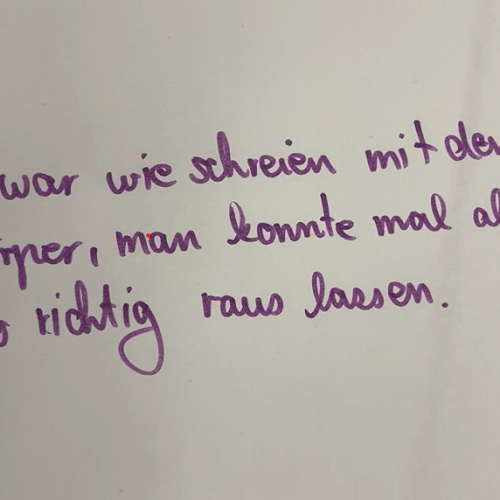 war wie schreien mit der
rper, man konnte mal al
s richtig raus lassen.